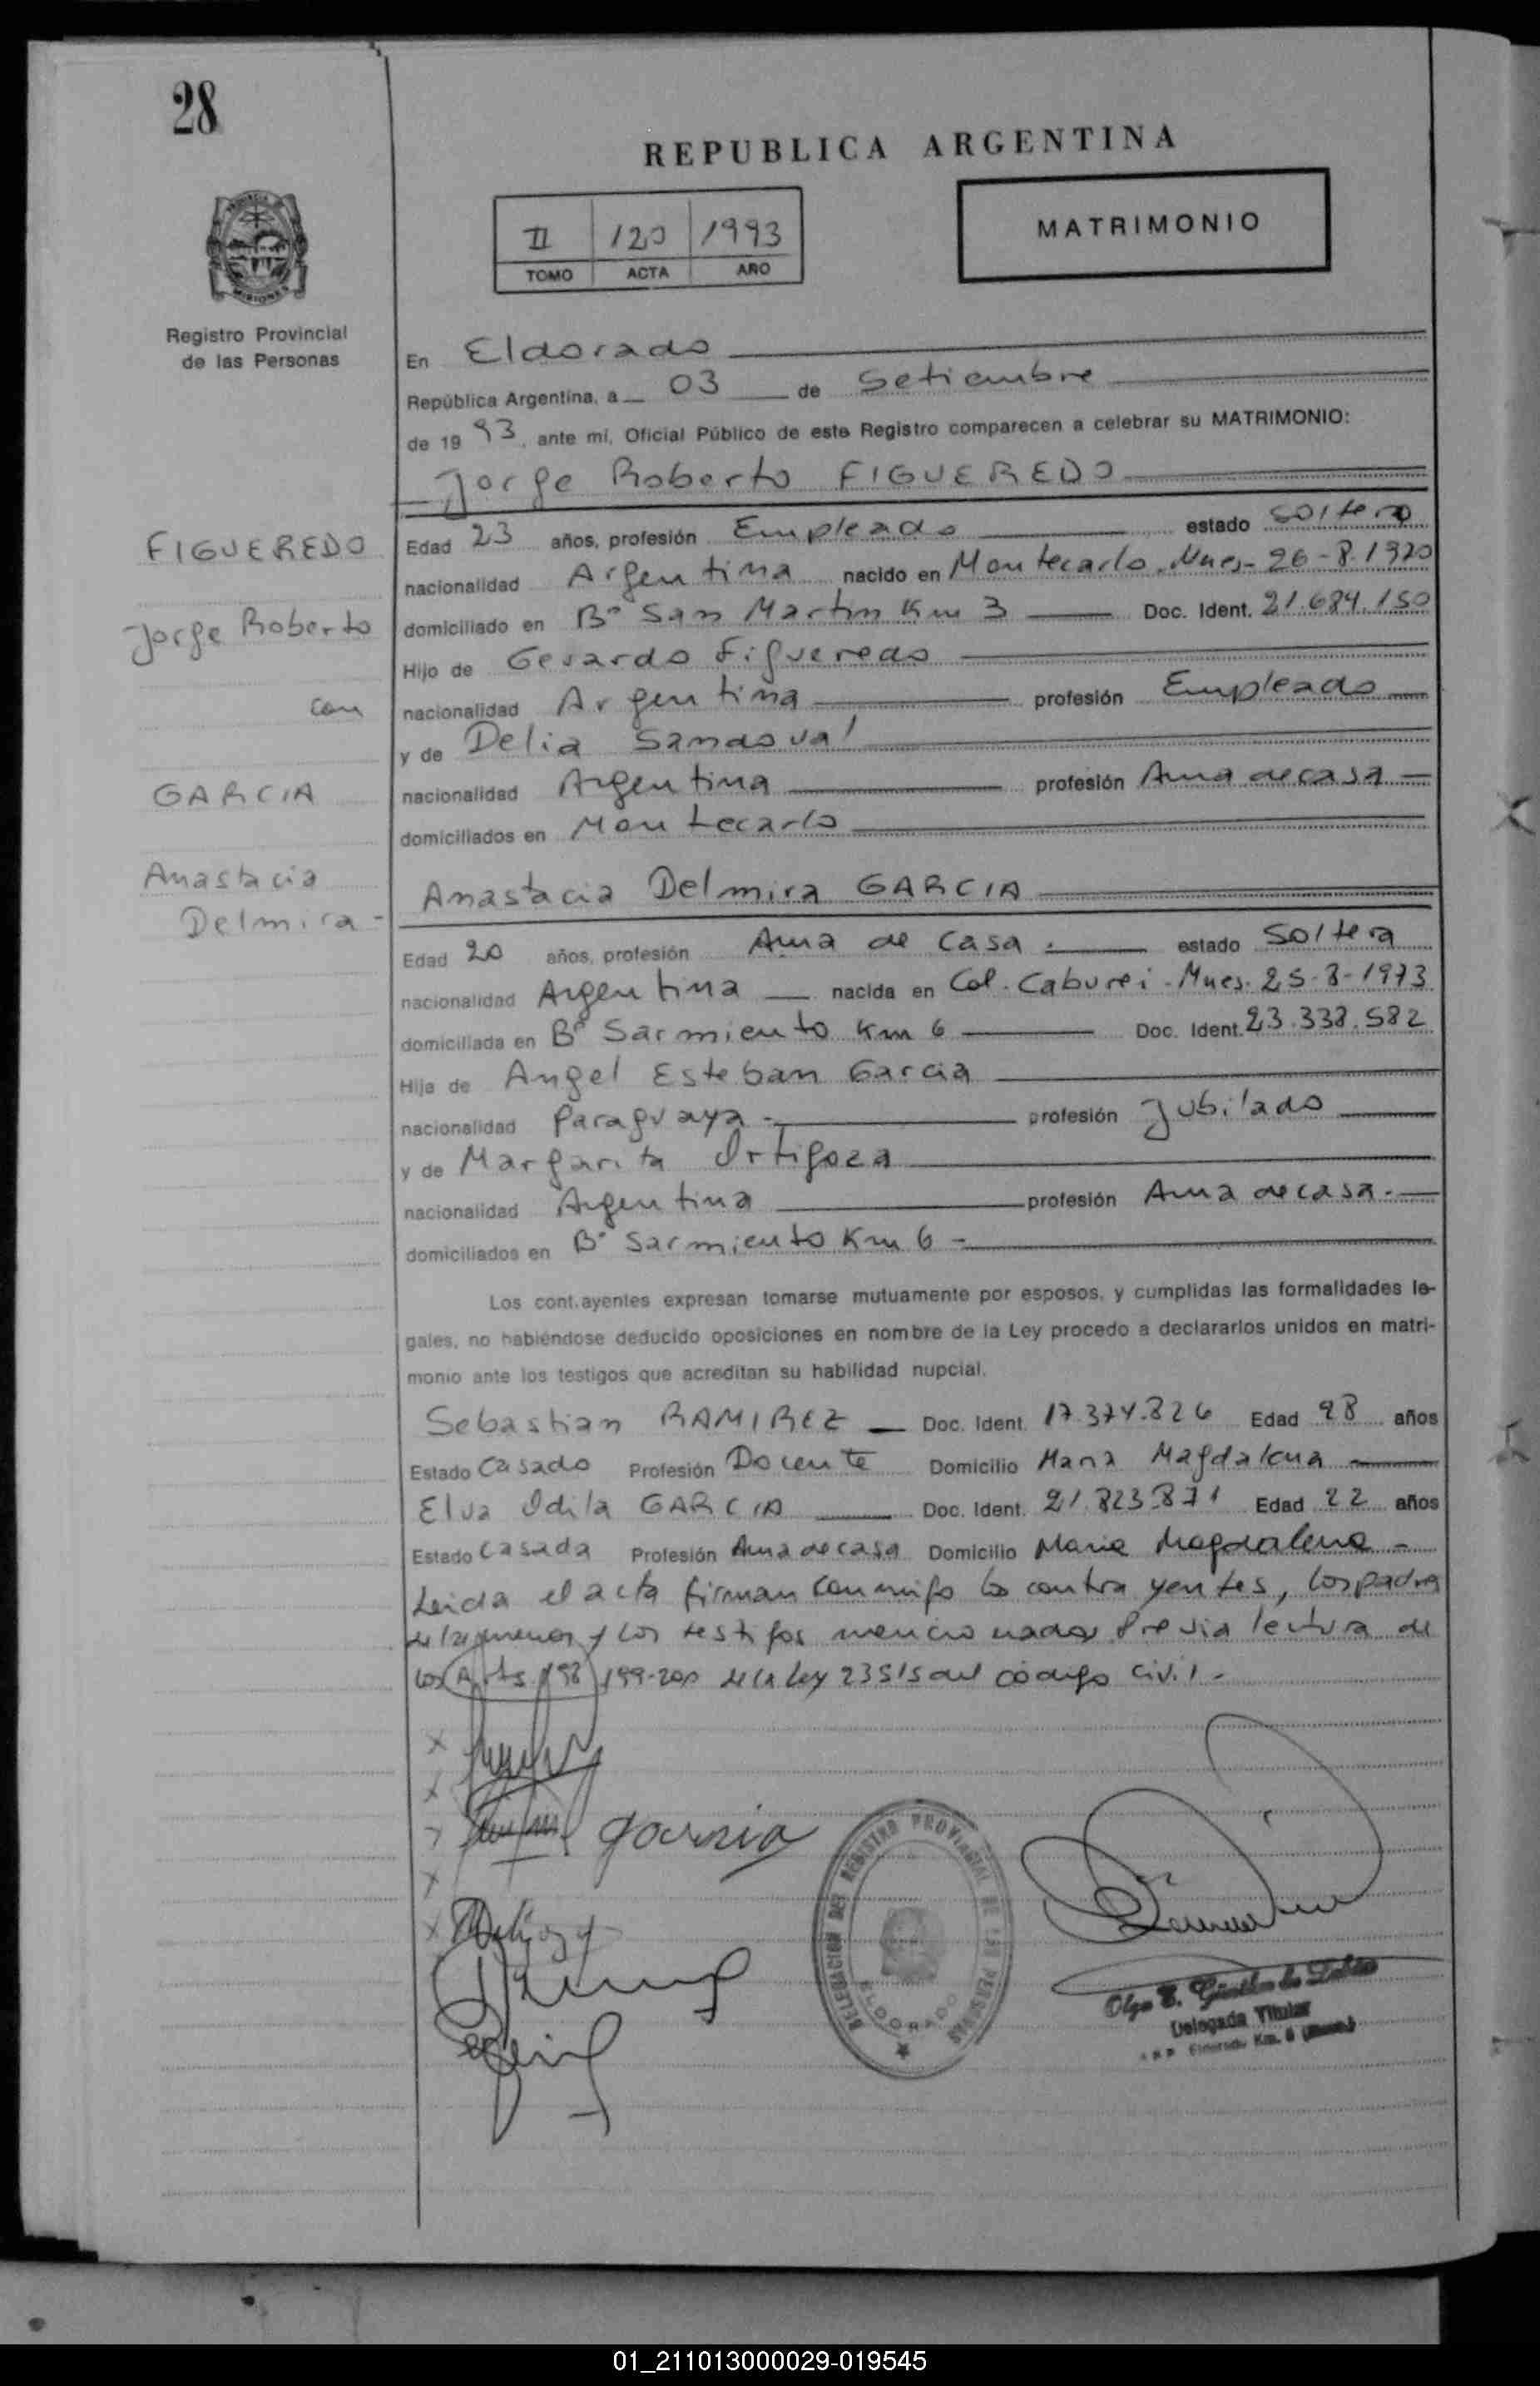 28
REPUBLICA ARGENTINA
II 120 1993
TOMO ACTA AÑO
MATRIMONIO
Registro Provincial
de las Personas
En Eldorado
República Argentina, a 03 de Setiembre
de 1993, ante mí, Oficial Público de este Registro comparecen a celebrar su MATRIMONIO:
Jorge Roberto FIGUEREDO
FIGUEREDO
Jorge Roberto
con
GARCIA
Anastacia
Delmira -
Edad 23 años, profesión Empleado estado soltero
nacionalidad Argentina nacido en Montecarlo. Mnes- 26-8-1970
domiciliado en Bº San Martin Km 3 Doc. Ident. 21.684.150
Hijo de Gerardo Figueredo
nacionalidad Argentina profesión Empleado
y de Delia Sandoval
nacionalidad Argentina profesión Ama de casa
domiciliados en Montecarlo
Anastacia Delmira GARCIA
Edad 20 años, profesión Ama de Casa. estado Soltera
nacionalidad Argentina nacida en Col. Caburei - Mnes. 25-8-1973
domiciliada en Bº Sarmiento Km 6 Doc. Ident. 23.338.582
Hija de Angel Esteban Garcia
nacionalidad Paraguaya - profesión Jubilado
y de Margarita Ortigoza
nacionalidad Argentina profesión Ama de casa.
domiciliados en Bº Sarmiento Km 6 -
Los contrayentes expresan tomarse mutuamente por esposos, y cumplidas las formalidades le-
gales, no habiéndose deducido oposiciones en nombre de la Ley procedo a declararlos unidos en matri-
monio ante los testigos que acreditan su habilidad nupcial.
Sebastian RAMIREZ Doc. Ident. 17.374.826 Edad 28 años
Estado Casado Profesión Docente Domicilio Maria Magdalena
Elva Odila GARCIA Doc. Ident. 21.823.871 Edad 22 años
Estado Casada Profesión Ama de casa Domicilio Maria Magdalena -
Leida el acta firman conmigo los contrayentes, los padres
de la menor y los testigos mencionados Previa lectura de
los Arts 198 199-200 de la Ley 23515 del código civil -
garcia
DELEGACION DEL REGISTRO PROVINCIAL DE LAS PERSONAS
ELDORADO
Olga E.
Delegada Titular
Eldorado Km. 6
01_211013000029-019545